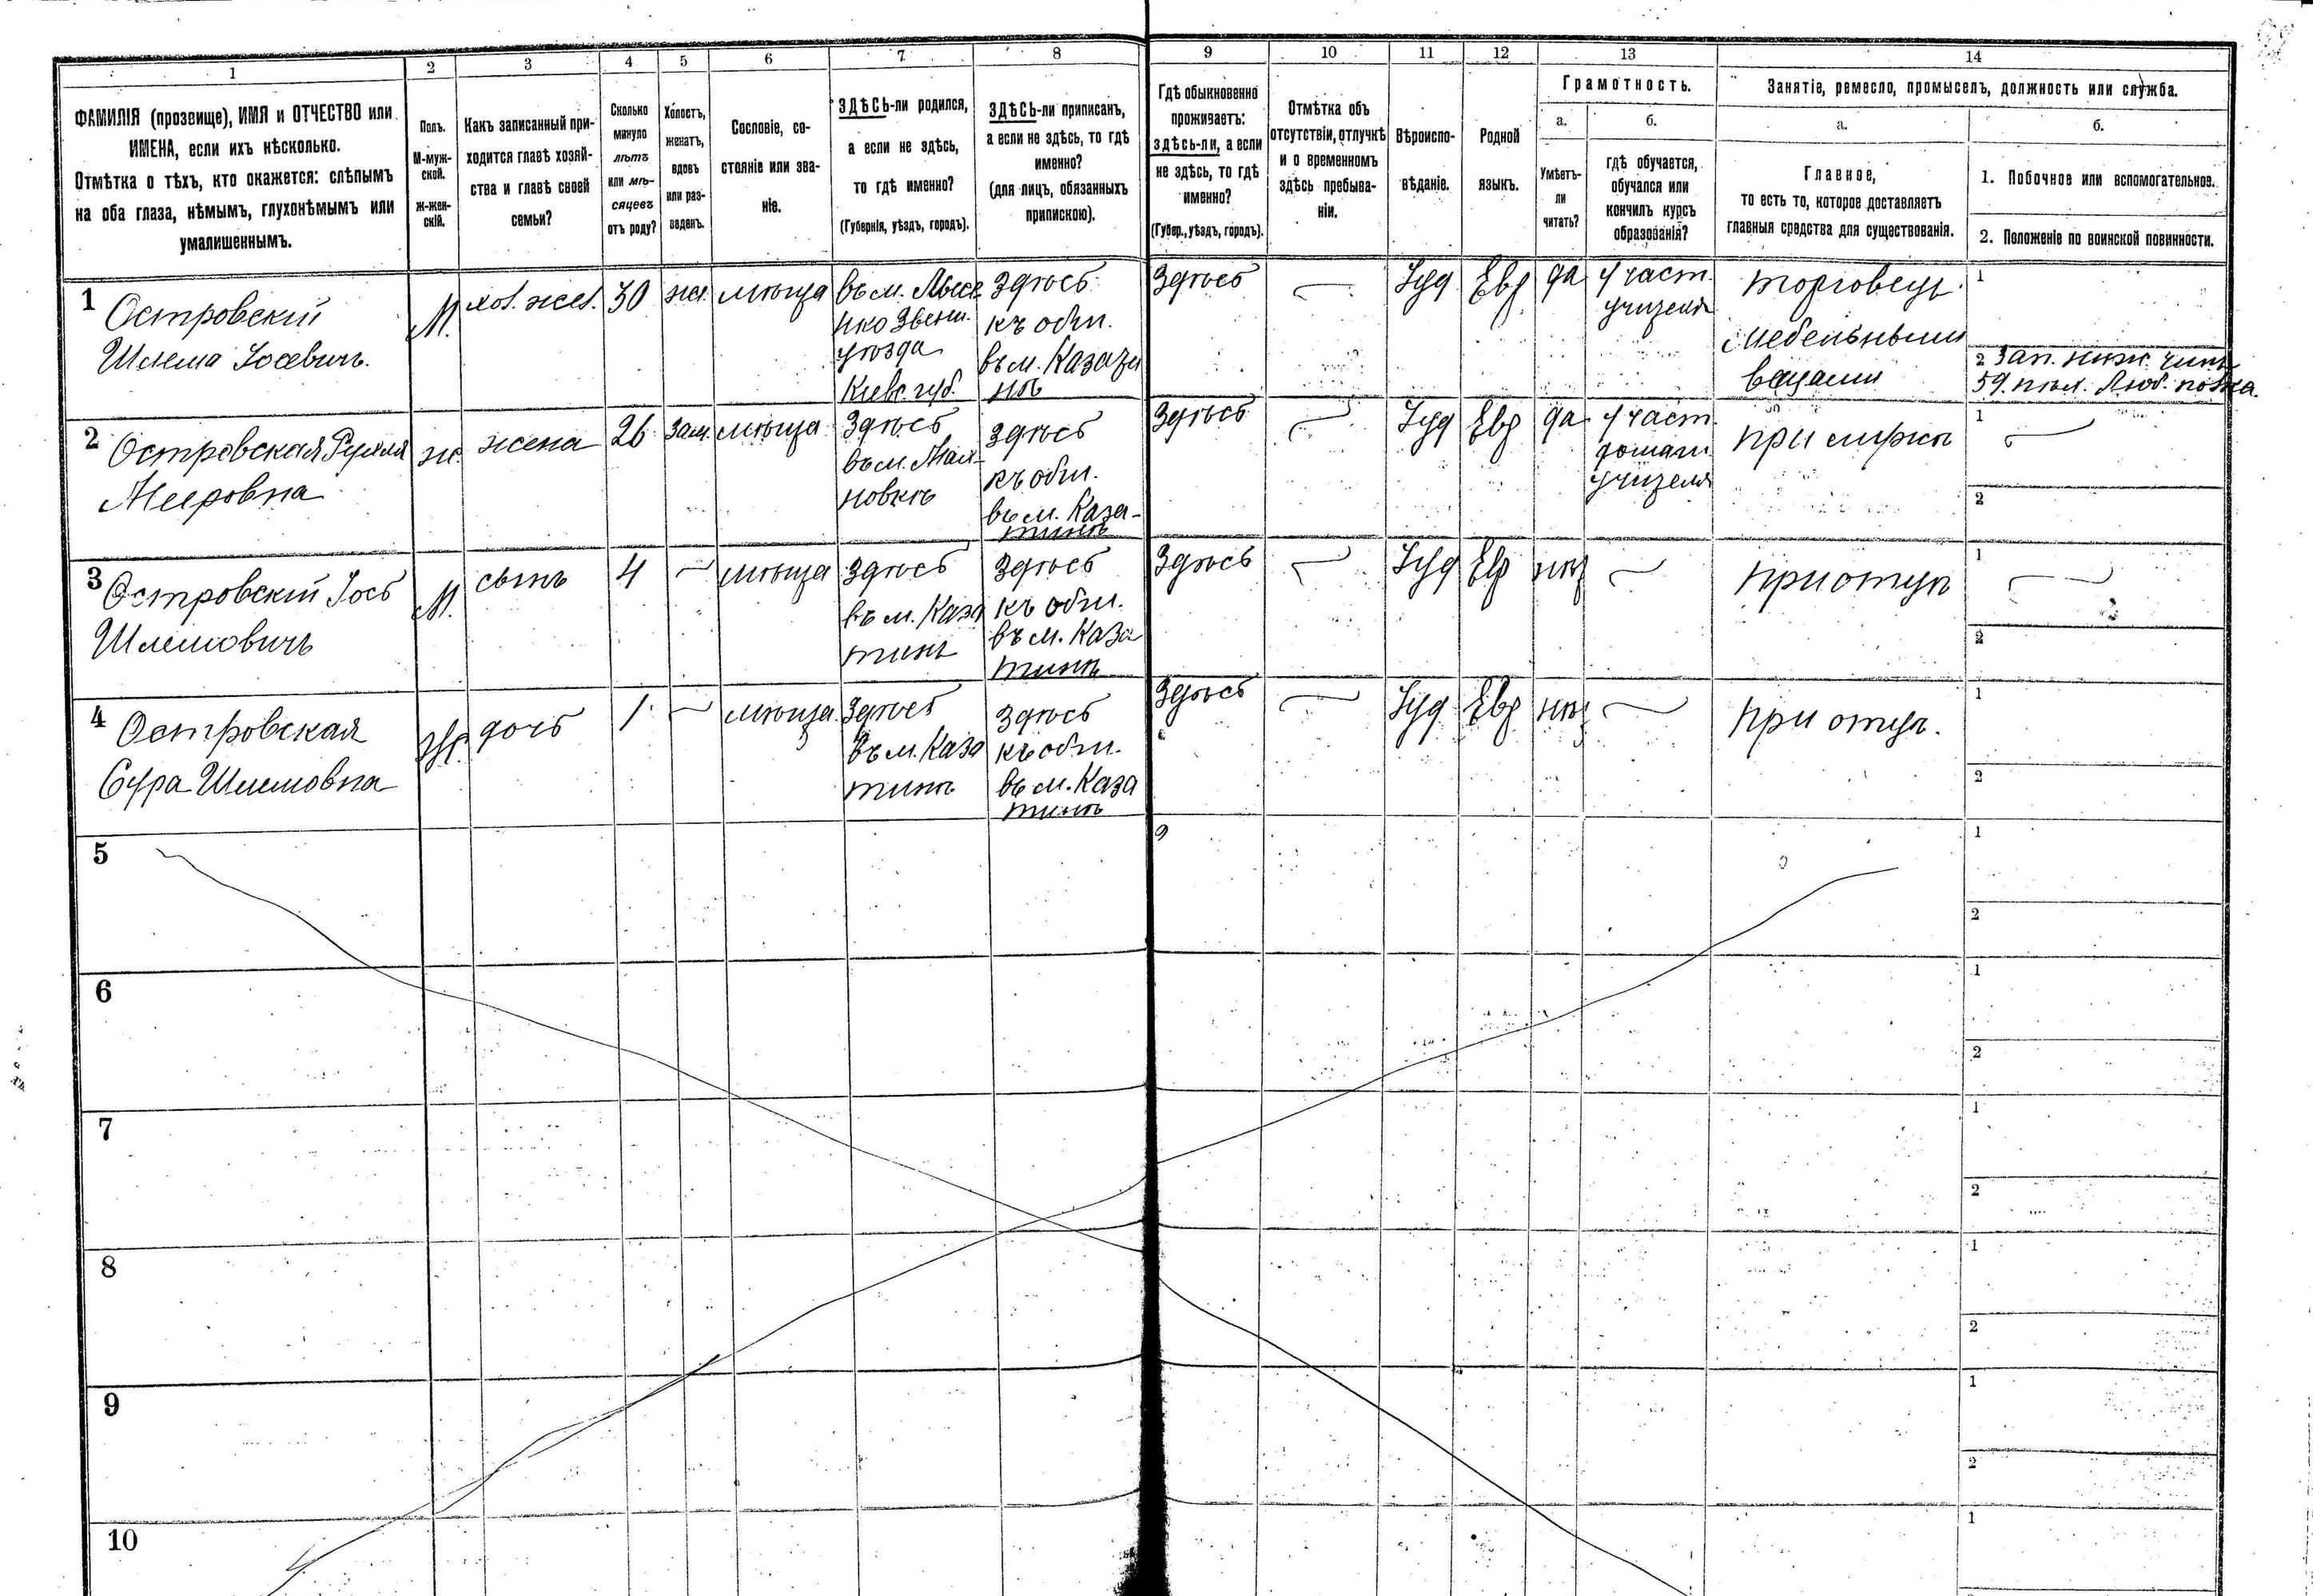 1 2 3 4 5 6 7 8 9 10 11 12 13 14
ФАМИЛІЯ (прозвище), ИМЯ и ОТЧЕСТВО или
ИМЕНА, если ихъ нѣсколько.
Отмѣтка о тѣхъ, кто окажется: слѣпымъ
на оба глаза, нѣмымъ, глухонѣмымъ или
умалишеннымъ.
Полъ.
М-муж-
ской.
Ж-жен-
скій.
Какъ записанный при-
ходится главѣ хозяй-
ства и главѣ своей
семьи?
Сколько
минуло
лѣтъ
или мѣ-
сяцевъ
отъ роду?
Холостъ,
женатъ,
вдовъ
или раз-
веденъ.
Сословіе, со-
стояніе или зва-
ніе.
ЗДѢСЬ-ли родился,
а если не здѣсь,
то гдѣ именно?
(Губернія, уѣздъ, городъ).
ЗДѢСЬ-ли приписанъ,
а если не здѣсь, то гдѣ
именно?
(для лицъ, обязанныхъ
припискою).
Гдѣ обыкновенно
проживаетъ:
здѣсь-ли, а если
не здѣсь, то гдѣ
именно?
(Губер., уѣздъ, городъ).
Отмѣтка объ
отсутствіи, отлучкѣ
и о временномъ
здѣсь пребыва-
ніи.
Вѣроиспо-
вѣданіе.
Родной
языкъ.
Грамотность.
а.
Умѣетъ-
ли
читать?
б.
гдѣ обучается,
обучался или
кончилъ курсъ
образованія?
Занятіе, ремесло, промыселъ, должность или служба.
а.
Главное,
то есть то, которое доставляетъ
главныя средства для существованія.
б.
1. Побочное или вспомогательное.
2. Положеніе по воинской повинности.
1
Островскій
Шлема Іосевичъ.
М.
хоз.
30
жен.
мѣща
въ м.
Звени.
уѣзда
Кіевс. губ.
Здѣсь
къ общ.
въ м. Казати
нѣ
Здѣсь
Іуд
Евр
да
У част.
учителя
торговецъ
мебельными
вещами
1
2 Зап. ниж. чинъ
59. пѣх. Люб. полка.
2
Островская Рухля
Меировна
ж.
жена
26
зам.
мѣща
Здѣсь
въ м.
новкѣ
Здѣсь
къ общ.
въ м. Каза-
тинѣ
Здѣсь
Іуд
Евр
да
У част
домаш.
учителя
при мужѣ
1
2
3
Островскій Іось
Шлемовичъ
М.
сынъ
4
мѣща
Здѣсь
въ м. Каза
тинѣ
Здѣсь
къ общ.
въ м. Каза
тинѣ
Здѣсь
Іуд
Евр
нѣт
при отцѣ
1
2
4
Островская
Сура Шлемовна
Ж.
дочь
1
мѣща
Здѣсь
въ м. Каза
тинѣ
Здѣсь
къ общ.
въ м. Каза
тинѣ
Здѣсь
Іуд
Евр
нѣт
при отцѣ.
1
2
5
1
2
6
1
2
7
1
2
8
1
2
9
1
2
10
1